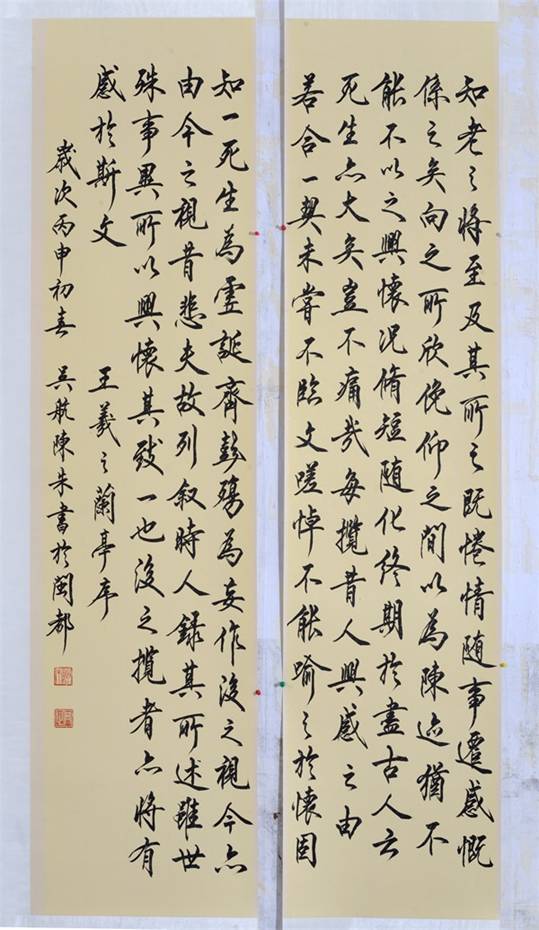 知老之將至及其所之既惓情随事遷感慨
係之矣向之所欣俛仰之閒以為陳迹猶不
能不以之興懷況脩短随化終期於盡古人云
死生亦大矣豈不痛哉每攬昔人興感之由
若合一契未嘗不臨文嗟悼不能喻之於懷固
知一死生為虛誕齊彭殤為妄作後之視今亦
由今之視昔悲夫故列叙時人錄其所述雖世
殊事異所以興懷其致一也後之攬者亦將有
感於斯文 王羲之蘭亭序
歲次丙申初春 吳航陳朱書於閩都